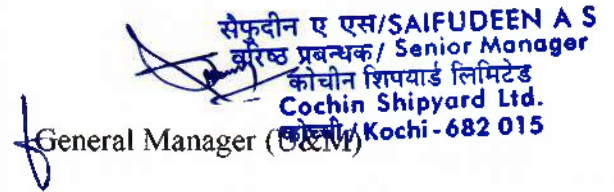 सैफुदीन ए एस/SAIFUDEEN A S
वरिष्ठ प्रबन्धक/ Senior Manager
कोचीन शिपयार्ड लिमिटेड
Cochin Shipyard Ltd.
कोच्ची/Kochi-682 015
General Manager (U&M)